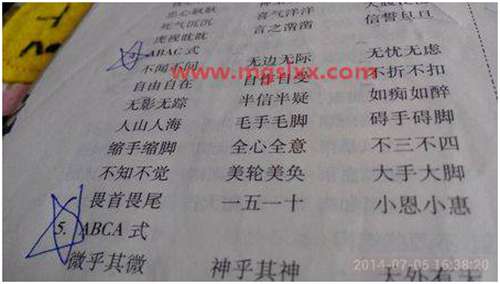 忠心耿耿
死气沉沉 喜气洋洋
虎视眈眈 言之凿凿 信誓旦旦
ABAC 式
不闻不问 无边无际 无忧无虑
www.mgslxx.com
自由自在 自作自受 不折不扣
无影无踪 半信半疑 如痴如醉
人山人海 毛手毛脚 碍手碍脚
缩手缩脚 全心全意 不三不四
不知不觉 美轮美奂 大手大脚
畏首畏尾 一五一十 小恩小惠
5. ABCA 式
微乎其微 神乎其神 天外有天
2014-07-05 16:38:20